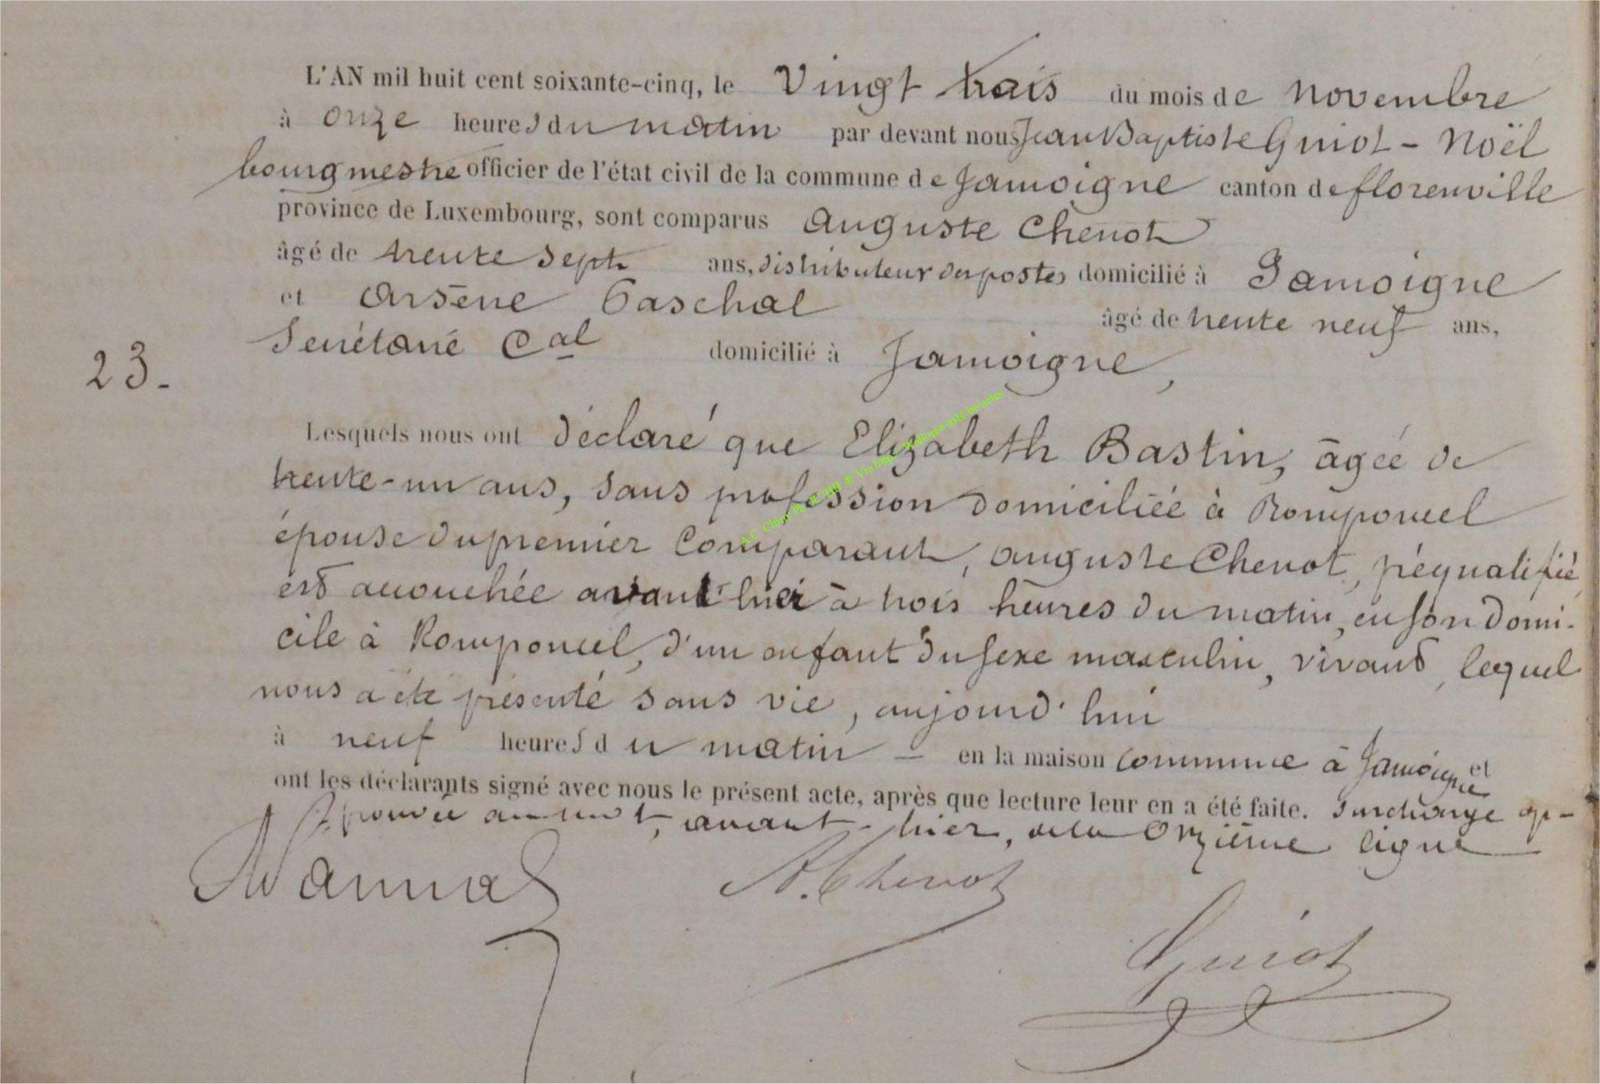 L'AN mil huit cent soixante-cinq, le Vingt trois du mois de Novembre
à onze heures du matin par devant nous Jean Baptiste Guiot - Noël
bourgmestre officier de l'état civil de la commune de Jamoigne canton de florenville
province de Luxembourg, sont comparus Auguste Chenot
âgé de trente sept ans, distributeur des postes domicilié à Jamoigne
et Arsène Paschal âgé de trente neuf ans,
Secrétaire Cal domicilié à Jamoigne,
23.
Lesquels nous ont déclaré que Elizabeth Bastin, âgée de
trente-un ans, sans profession domiciliée à Romponcel
épouse du premier Comparant, auguste Chenot, préqualifié,
est accouchée avant hier à trois heures du matin, en son domi-
cile à Romponcel, d'un enfant du sexe masculin, vivant, lequel
nous a été présenté sans vie, aujourd'hui
à neuf heures du matin - en la maison commune à Jamoigne et
ont les déclarants signé avec nous le présent acte, après que lecture leur en a été faite. Surcharge ap-
prouvée au mot, avant-hier, de la Onzième ligne
A. Chenot
Guiot